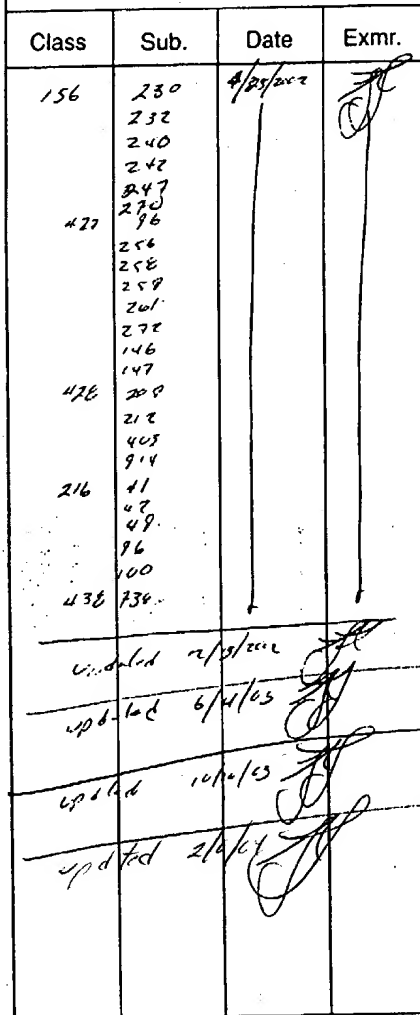 Class Sub. Date Exmr.
156 230 4/25/2002
232
240
242
247
270
427 96
256
258
259
261
272
146
147
428 209
212
409
914
216 41
42
49
96
100
438 734
updated 2/13/2002
updated 6/4/03
updated 10/6/03
updated 2/6/04